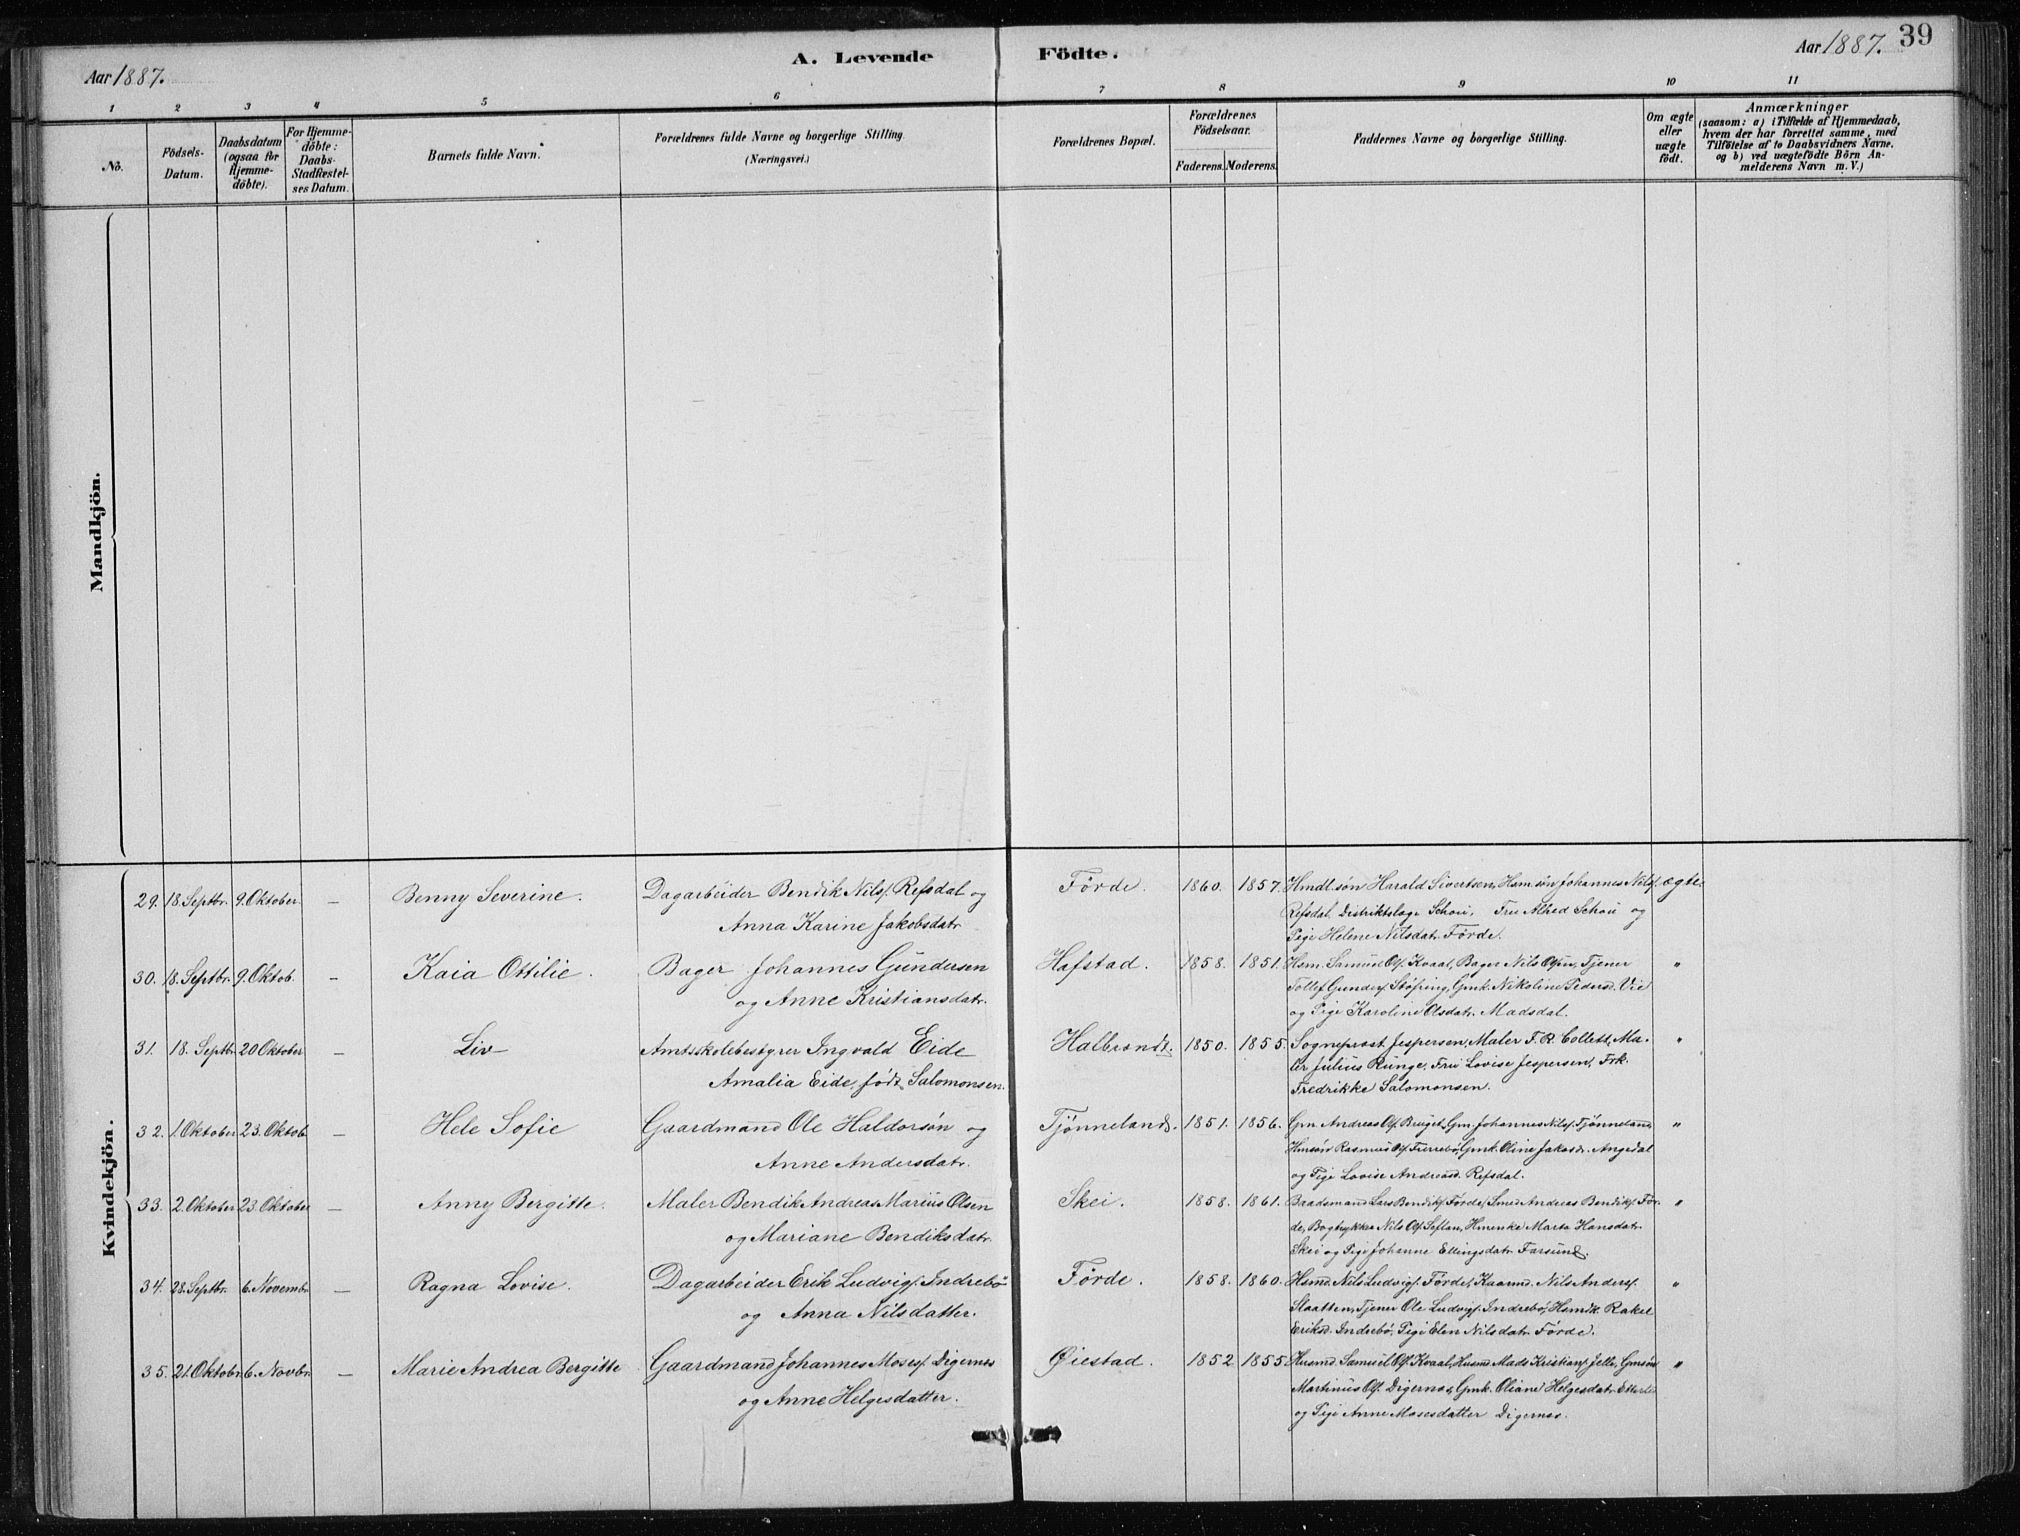 Aar 1887.
A. Levende Födte.
Aar 1887. 39
1 2 3 4 5 6 7 8 9 10 11
No.
Födsels-Datum.
Daabsdatum (ogsaa for Hjemme-döbte).
For Hjemme-döbte: Daabs-Stadfæstel-ses Datum.
Barnets fulde Navn.
Forældrenes fulde Navne og borgerlige Stilling.
(Næringsvei.)
Forældrenes Bopæl.
Forældrenes Födselsaar.
Faderens. Moderens.
Faddernes Navne og borgerlige Stilling.
Om ægte eller uægte födt.
Anmærkninger
(saasom: a) i Tilfælde af Hjemmedaab,
hvem der har forrettet samme, med
Tilföielse af to Daabsvidners Navne.
og b) ved uægtefödte Börn An-
melderens Navn m. V.)
Mandkjön.
Kvindekjön.
29. 18. Septbr. 9. Oktober. – Benny Severine. Dagarbeider Bendik Nilsf. Refsdal og Førde. 1860. 1857. Hmdl.søn Harald Sivertsen, Hsm.søn Johannes Nilsf. ægte.
Anna Karine Jakobsdatr. Refsdal, Distriktslæge Schou, Fru Alhed Schou og
Pige Helene Nilsdatr. Førde.
30. 18. Septbr. 9. Oktob. – Kaia Ottilie. Bager Johannes Gundersen Hafstad. 1858. 1851. Hsm. Samuel Olsf. Kvaal, Bager Nils Olsen, Tjener "
og Anne Kristiansdatr. Tollef Gundersf. Støfring, Gmk. Nikoline Pedersd. Vie
og Pige Karoline Olsdatr. Madsdal.
31. 18. Septbr. 20 Oktober – Liv Amtsskolebestyrer Ingvald Eide Halbrendt. 1850. 1855. Sogneprost Jespersen, Maler F. R. Collett, Ma- "
Amalia Eide, født Salomonsen. ler Julius Runge, Fru Lovise Jespersen, Frk.
Fredrikke Salomonsen.
32. 1. Oktober 23. Oktob. – Hele Sofie Gaardmand Ole Haldorsøn og Tjønneland. 1851. 1856. Gm. Andreas Olsf. Bruget, Gm. Johannes Nilsf. Tjønneland, "
Anne Andersdatr. Hmsøn Rasmus Olsf. Gmk. Oline Jakobsdr. Angedal
og Pige Lovise Andreasd. Refsdal.
33. 2. Oktober 23. Oktober – Anny Bergitte. Maler Bendik Andreas Marius Olsen Skei. 1858. 1861. Baadsmand Lars Bendiksf. Førde, Smed Andreas Bendiksf. Før- "
og Mariane Bendiksdatr. de, Bogtrykker Nils Olsf. Seftan, Hmenke Marta Hansdatr.
Skei og Pige Johanne Ellingsdatr. Farsund.
34. 28. Septbr. 6. Novembr. – Ragna Lovise. Dagarbeider Erik Ludvigsf. Indrebö Førde. 1858. 1860. Hsmd. Nils Ludvigsf. Førde, Kaarmd. Nils Andersf. "
og Anna Nilsdatter. Slaatten, Tjener Ole Ludvigsf. Indrebö, Hsmk. Rakel
Eriksd. Indrebö, Pige Elen Nilsdatr. Førde.
35. 21. Oktobr. 6. Novbr. – Marie Andrea Bergitte Gaardmand Johannes Mosesf. Digernes Øiestad. 1852 1855 Husmd. Samuel Olsf. Kvaal, Husmd. Mads Kristiansf. Jelle, Gmsøn "
og Anne Helgesdatter. Martinus Olsf. Digernes, Gmk. Oliane Helgesdatr. Etterli
og Pige Anne Mosesdatter Digernes.